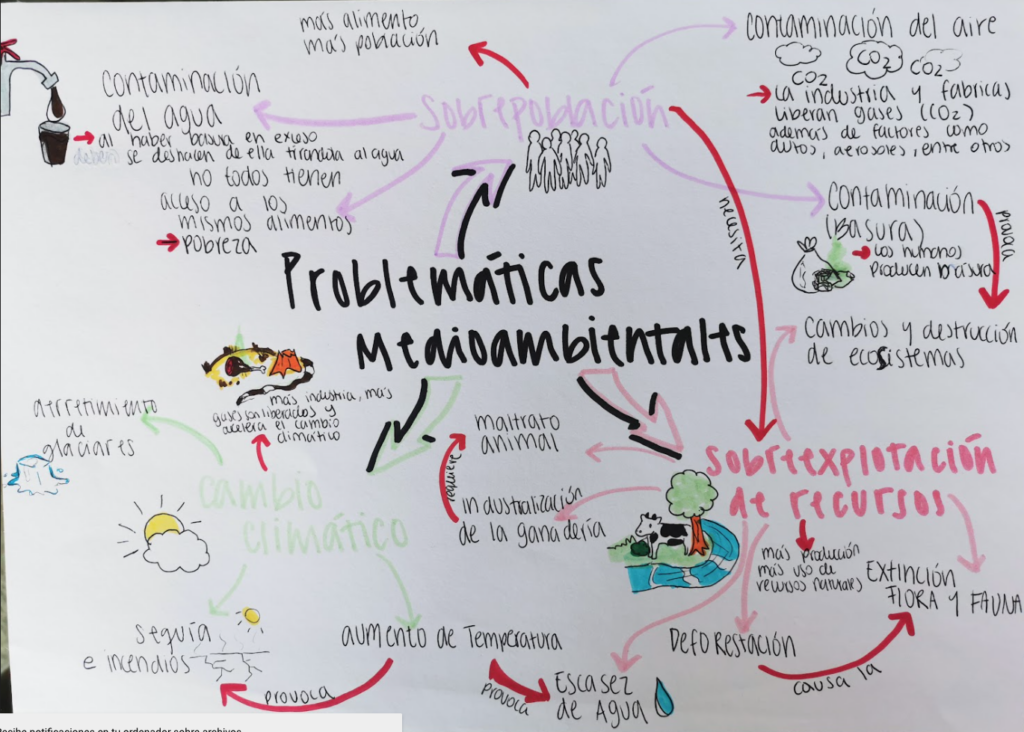 más alimento
más población
contaminación del aire
CO2
CO2
CO2
La industria y fabricas
liberan gases (CO2)
además de factores como
autos, aerosoles, entre otros
contaminación
del agua
al haber basura en exceso
se deshacen de ella tirandola al agua
sobrepoblación
no todos tienen
acceso a los
mismos alimentos
pobreza
necesita
contaminación
(Basura)
Los humanos
producen basura
provoca
Problemáticas
Medioambientales
Cambios y destrucción
de ecosistemas
más industria, más
gases son liberados y
acelera el cambio
climático
derretimiento
de
glaciares
maltrato
animal
requiere
industralización
de la ganadería
sobreexplotación
de recursos
cambio
climático
más producción
más uso de
recursos naturales
EXTINCIÓN
FLORA Y FAUNA
seguía
e incendios
aumento de Temperatura
DEFORESTACIÓN
provoca
provoca
Escasez
de Agua
causa la